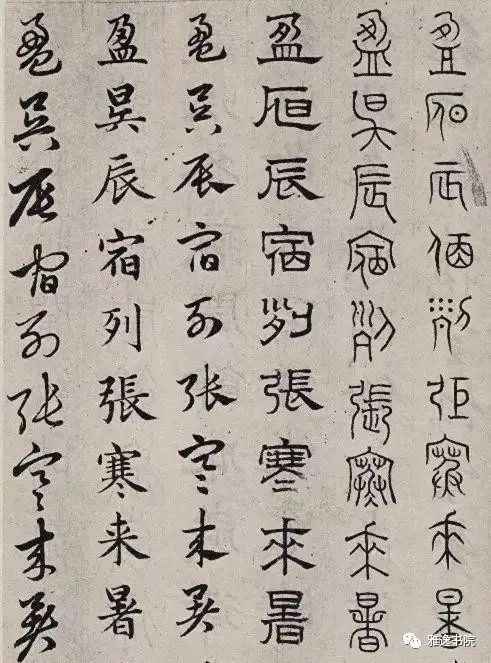 盈昃辰宿列張寒來暑
盈昃辰宿列張寒來暑
盈昃辰宿列張寒來暑
盈昃辰宿列張寒来暑
盈昃辰宿列張寒来暑
盈昃辰宿列張寒来暑
雅逸书院